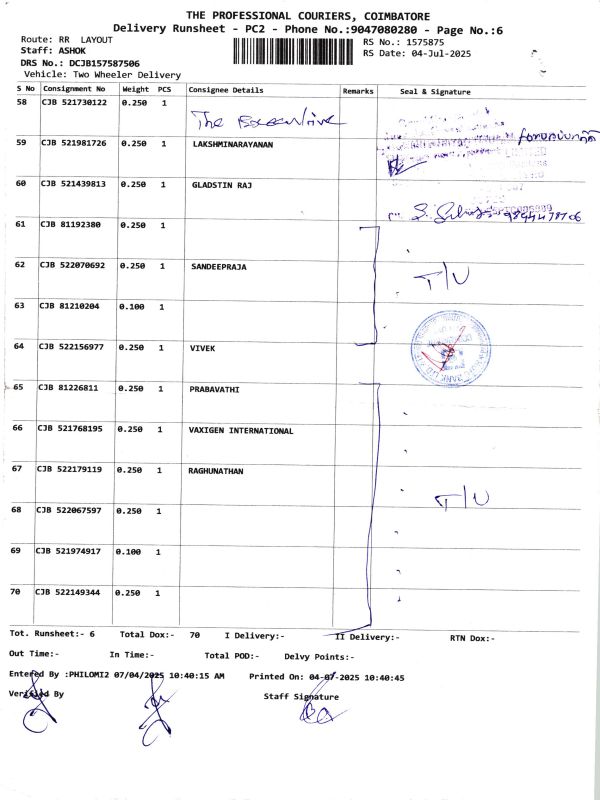 THE PROFESSIONAL COURIERS, COIMBATORE
Delivery Runsheet - PC2 - Phone No.:9047080280 - Page No.:6
Route: RR LAYOUT
RS No.: 1575875
Staff: ASHOK
RS Date: 04-Jul-2025
DRS No.: DCJB157587506
Vehicle: Two Wheeler Delivery
S No Consignment No Weight PCS Consignee Details Remarks Seal & Signature
58 CJB 521730122 0.250 1 The Executive
59 CJB 521981726 0.250 1 LAKSHMINARAYANAN
60 CJB 521439813 0.250 1 GLADSTIN RAJ
61 CJB 81192380 0.250 1
62 CJB 522070692 0.250 1 SANDEEPRAJA T/U
63 CJB 81210204 0.100 1
64 CJB 522156977 0.250 1 VIVEK
65 CJB 81226811 0.250 1 PRABAVATHI
66 CJB 521768195 0.250 1 VAXIGEN INTERNATIONAL
67 CJB 522179119 0.250 1 RAGHUNATHAN T/U
68 CJB 522067597 0.250 1
69 CJB 521974917 0.100 1
70 CJB 522149344 0.250 1
Tot. Runsheet:- 6 Total Dox:- 70 I Delivery:- II Delivery:- RTN Dox:-
Out Time:- In Time:- Total POD:- Delvy Points:-
Entered By :PHILOMI2 07/04/2025 10:40:15 AM Printed On: 04-07-2025 10:40:45
Verified By Staff Signature